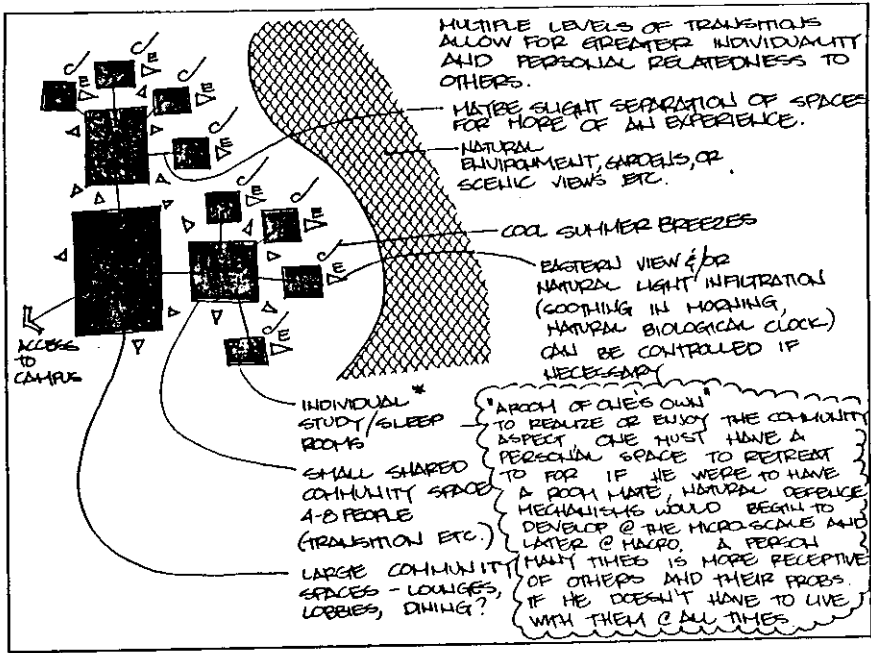 MULTIPLE LEVELS OF TRANSITIONS
ALLOW FOR GREATER INDIVIDUALITY
AND PERSONAL RELATEDNESS TO
OTHERS.
MAYBE SLIGHT SEPARATION OF SPACES
FOR MORE OF AN EXPERIENCE.
NATURAL
ENVIRONMENT, GARDENS, OR
SCENIC VIEWS ETC.
COOL SUMMER BREEZES
EASTERN VIEW &/OR
NATURAL LIGHT INFILTRATION
(SOOTHING IN MORNING,
NATURAL BIOLOGICAL CLOCK)
CAN BE CONTROLLED IF
NECESSARY
E
E
E
E
E
E
E
E
ACCESS
TO
CAMPUS
INDIVIDUAL *
STUDY/SLEEP
ROOMS
SMALL SHARED
COMMUNITY SPACE
4-8 PEOPLE
(TRANSITION ETC.)
LARGE COMMUNITY
SPACES - LOUNGES,
LOBBIES, DINING?
"A ROOM OF ONE'S OWN"
TO REALIZE OR ENJOY THE COMMUNITY
ASPECT, ONE MUST HAVE A
PERSONAL SPACE TO RETREAT
TO FOR IF HE WERE TO HAVE
A ROOM MATE, NATURAL DEFENCE
MECHANISMS WOULD BEGIN TO
DEVELOP @ THE MICRO SCALE AND
LATER @ MACRO. A PERSON
MANY TIMES IS MORE RECEPTIVE
OF OTHERS AND THEIR PROBS.
IF HE DOESN'T HAVE TO LIVE
WITH THEM @ ALL TIMES